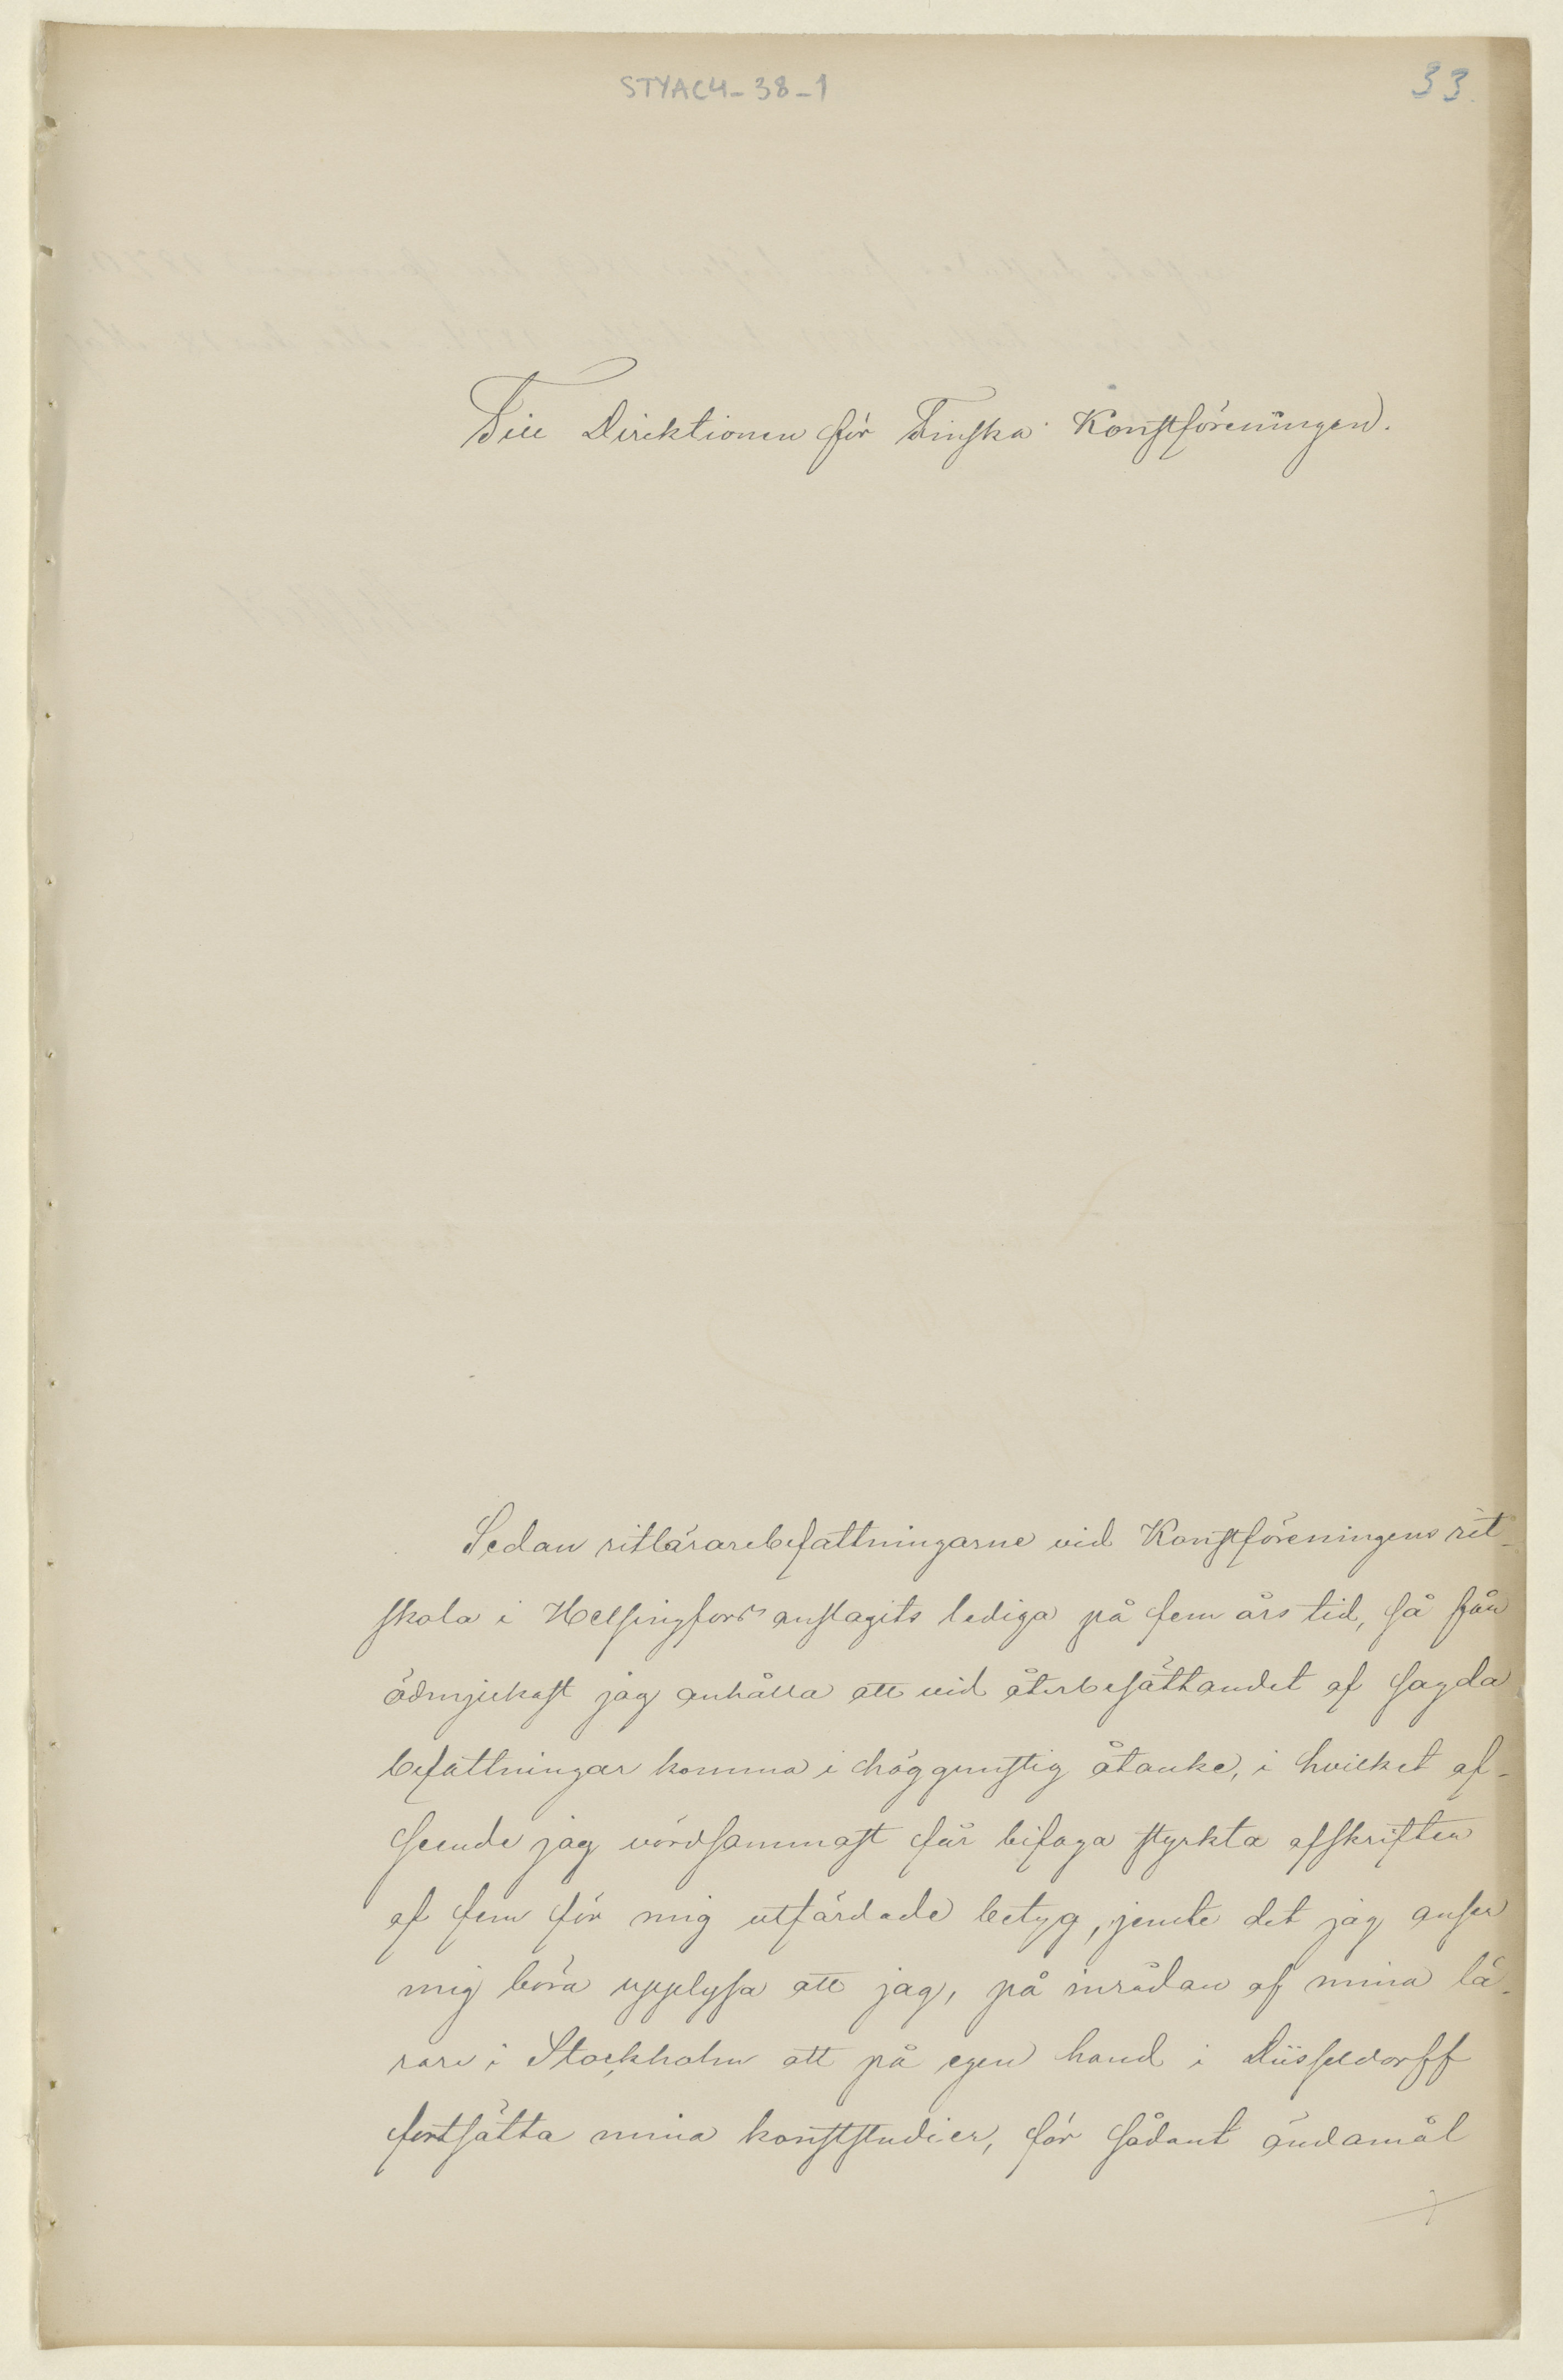 STYAC4-38-1
33.
Till Direktionen för Finska Konstföreningen.
Sedan ritlärarebefattningarne vid Konstföreningens rit-
skola i Helsingfors anslagits lediga på fem års tid, så får
ödmjukast jag anhålla att vid återbesättandet af sagda
befattningar komma i höggunstig åtanke, i hvilket af-
seende jag vördsammast får bifoga styrkta afskriften
af fem för mig utfärdade betyg, jemte det jag anser
mig böra upplysa att jag, på inrådan af mina lä-
rare i Stockholm att på egen hand i Düsseldorff
fortsätta mina konststudier, för sådant ändamål